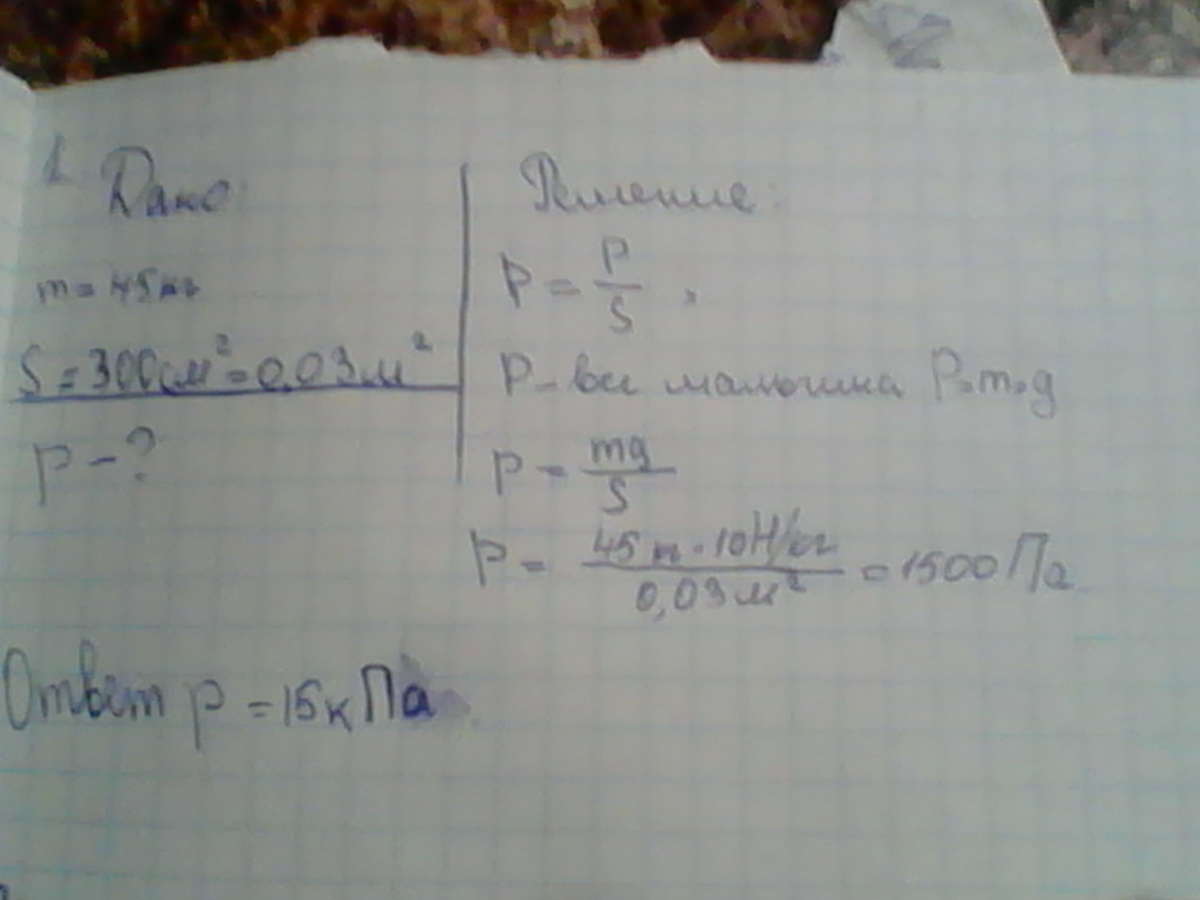 1. Дано:
m = 45кг
S = 300см² = 0,03м²
p - ?
Решение:
P = P/S,
P - вес мальчика P=m·g
P = mg/S
P = 45кг·10Н/кг / 0,03м² = 1500Па
Ответ p = 15кПа